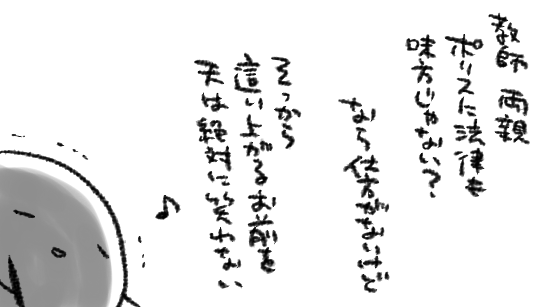 教師 両親
ポリスに法律も
味方じゃない？
なら仕方がないけど
そっから
這い上がるお前を
天は絶対に笑わない
♪